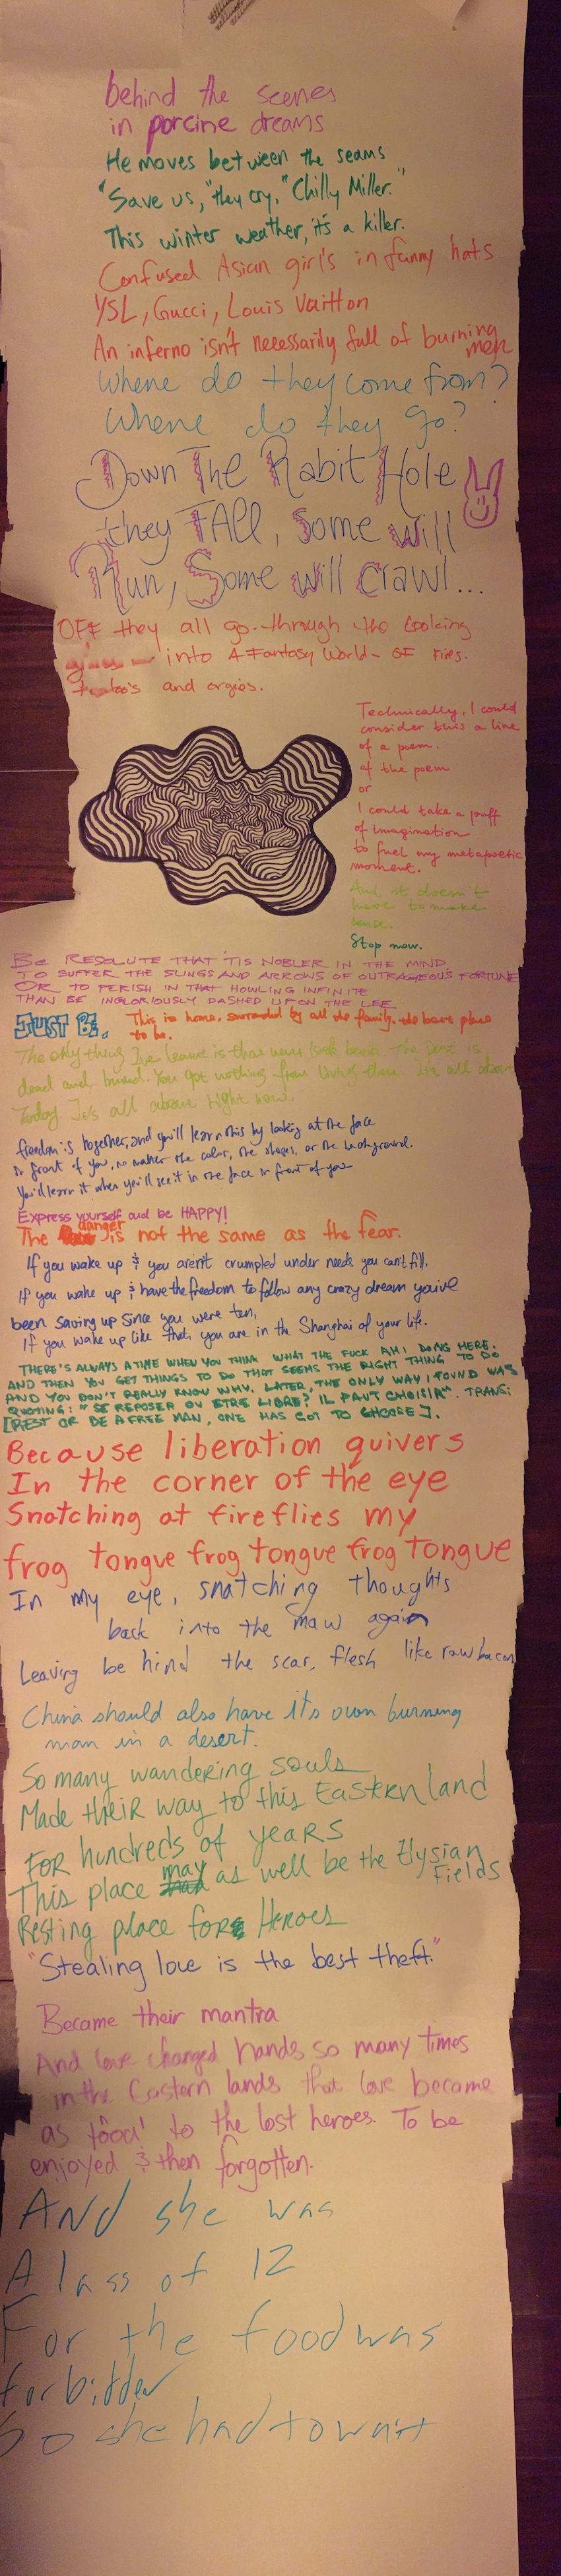 behind the scenes
in porcine dreams
He moves between the seams
"Save us," they cry, "Chilly Miller."
This winter weather, it's a killer.
Confused Asian girl's in funny hats
YSL, Gucci, Louis Vaitton
An inferno isn't necessarily full of burning
men
Where do they come from?
Where do they go?
Down The Rabit Hole
they FAll, Some will
Run, Some will crawl...
OFF they all go through the Looking
into A Fantasy World - OF Fires.
and orgies.
Technically, I could
consider this a line
of a poem.
of the poem
or
I could take a puff
of imagination
to fuel my metapoetic
moment.
And it doesn't
have to make
sense.
Stop now.
BE RESOLUTE THAT 'TIS NOBLER IN THE MIND
TO SUFFER THE SLINGS AND ARROWS OF OUTRAGEOUS FORTUNE
OR TO PERISH IN THAT HOWLING INFINITE
THAN BE INGLORIOUSLY DASHED UPON THE LEE
JUST BE.
This is home, surrounded by all the family. the best place
to be.
The only thing I've learnt is that never look back. The past is
dead and buried. You got nothing from living there. It's all about
Today. It's all about right now.
freedom is together, and you'll learn this by looking at the face
in front of you, no matter the color, the shapes, or the background.
You'll learn it when you'll see it in the face in front of you
Express yourself and be HAPPY!
The danger is not the same as the fear.
If you wake up & you aren't crumpled under needs you can't fill,
If you wake up & have the freedom to follow any crazy dream you've
been saving up since you were ten,
If you wake up like that, you are in the Shanghai of your life.
THERE'S ALWAYS A TIME WHEN YOU THINK WHAT THE FUCK AM I DOING HERE.
AND THEN YOU GET THINGS TO DO THAT SEEMS THE RIGHT THING TO DO
AND YOU DON'T REALLY KNOW WHY. LATER, THE ONLY WAY I FOUND WAS
QUOTING: "SE REPOSER OU ETRE LIBRE? IL FAUT CHOISIR". TRANS:
[REST OR BE A FREE MAN, ONE HAS GOT TO CHOOSE].
Because liberation quivers
In the corner of the eye
Snatching at fireflies my
frog tongue frog tongue frog tongue
In my eye, snatching thoughts
back into the maw again
Leaving behind the scar, flesh like raw bacon
China should also have its own burning
man in a desert.
So many wandering souls
Made their way to this Eastern land
For hundreds of years
This place may as well be the Elysian
Fields
Resting place for Heroes
"Stealing love is the best theft."
Became their mantra
And love changed hands so many times
in the Eastern lands that love became
as 'food' to the lost heroes. To be
enjoyed & then forgotten.
And she was
A lass of 12
For the food was
forbidden
So she had to wait